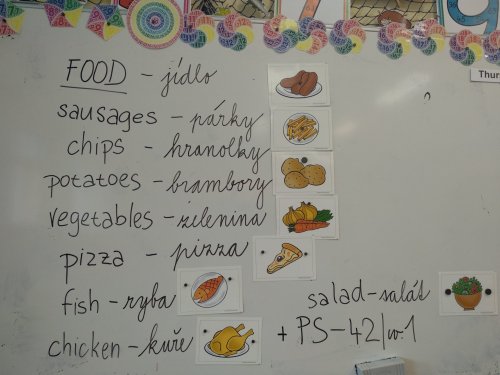 FOOD - jídlo
Thur
sausages - párky
chips - hranolky
potatoes - brambory
vegetables - zelenina
pizza - pizza
fish - ryba
salad - salát
chicken - kuře
+ PS-42/cv.1